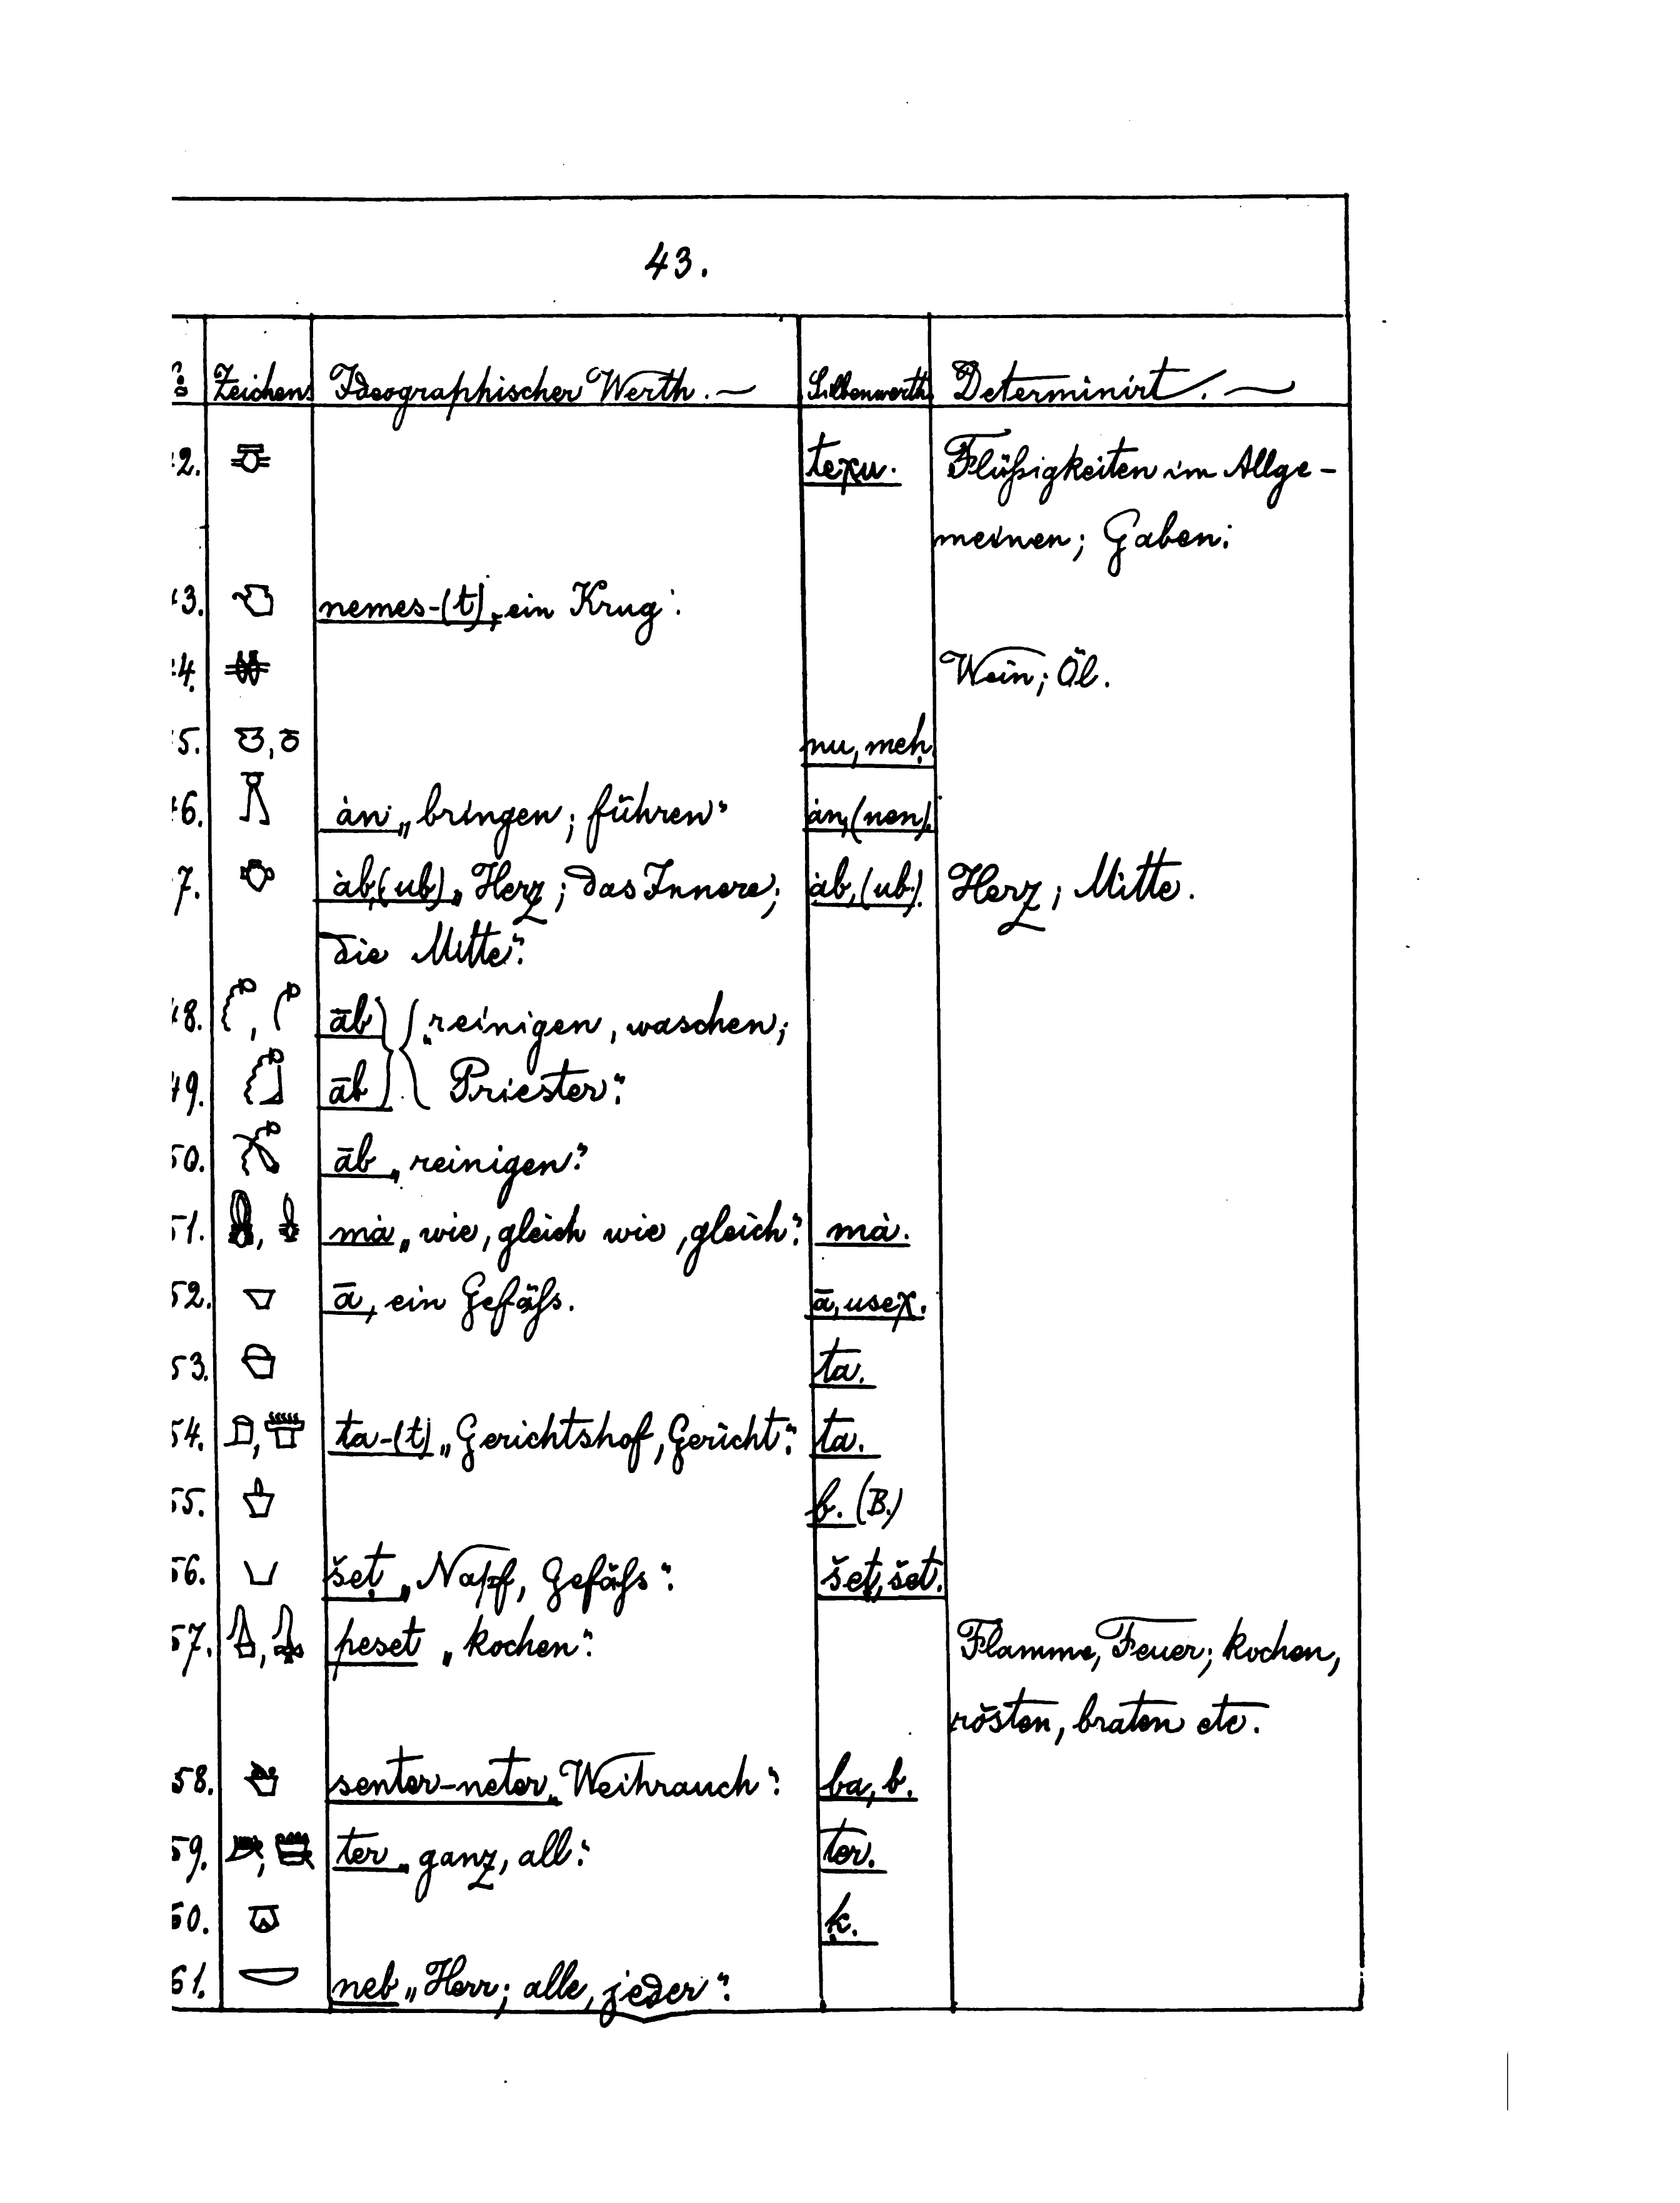 43.
Zeichen Ideographischer Werth. Silbenwerth Determinirt.
2. teχu. Flüßigkeiten im Allge-
meinen; Gaben.
3. nemes-(t), ein Krug.
4. Wein; Öl.
5. nu, meḥ
6. ȧn „bringen; führen“ ȧn, (nen).
7. ȧb, (ub) „Herz; das Innere; ȧb, (ub). Herz; Mitte.
die Mitte“.
48. āb „reinigen, waschen;
49. āb Priester“.
50. āb „reinigen“.
51. mȧ „wie, gleich wie, gleich“. mȧ.
52. ā, ein Gefäſs. ā, useχ.
53. ta.
54. ta-(t) „Gerichtshof, Gericht“. ta.
55. b. (B.)
56. šeṭ „Napf, Gefäſs“. šeṭ, šet.
57. peset „kochen“. Flamme, Feuer; kochen,
rösten, braten etc.
58. senter-neter „Weihrauch“. ba, b.
59. ter „ganz, all“. ter.
60. ḳ.
61. neb „Herr; alle, jeder“.